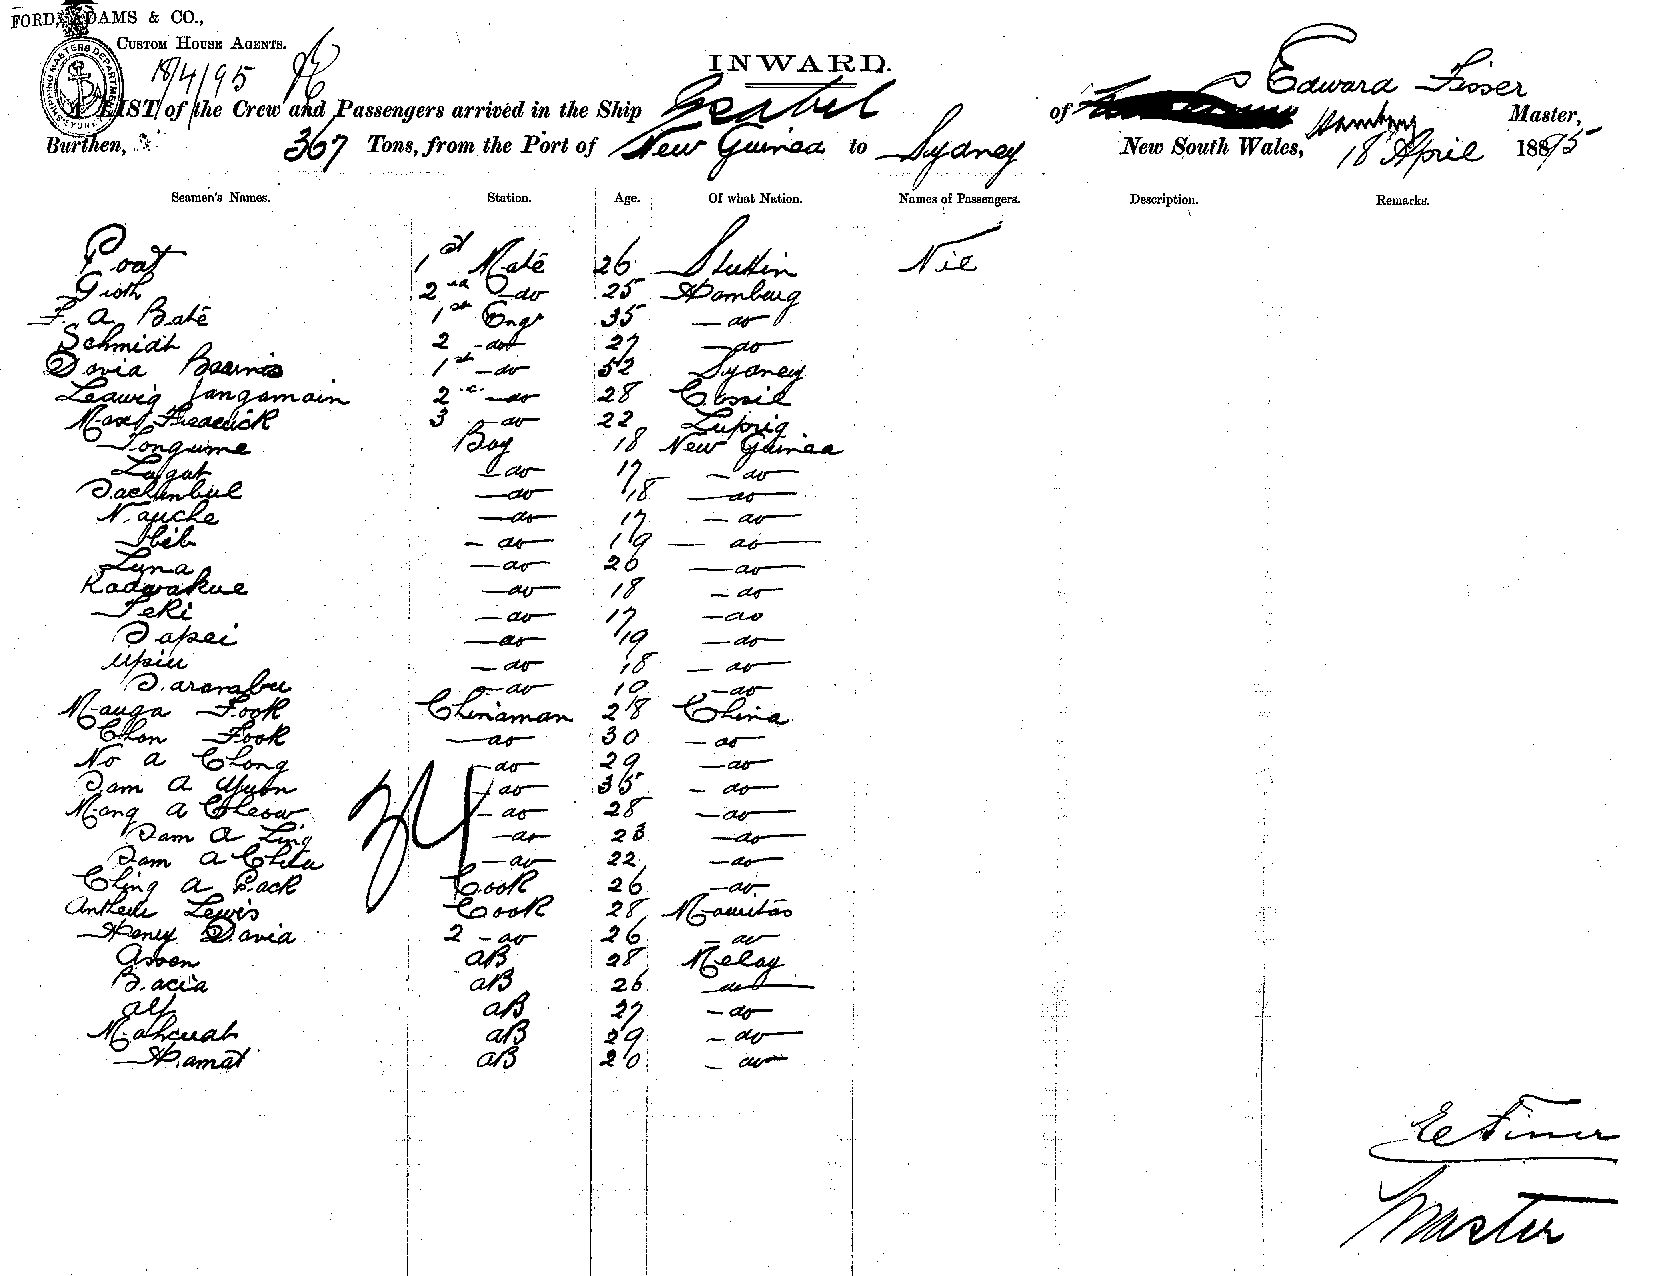 FORD, ADAMS & CO.,
CUSTOM HOUSE AGENTS.
18/4/95
INWARD.
LIST of the Crew and Passengers arrived in the Ship Ysabel of Hamburg Edward Fisser Master,
Burthen, 367 Tons, from the Port of New Guinea to Sydney New South Wales, 18 April 1895
Seamen's Names. Station. Age. Of what Nation. Names of Passengers. Description. Remarks.
Poat 1st Mate 26 Stettin Nil
Groth 2nd do 25 Hamburg
F. A Bate 1st Engr 35 do
Schmidt 2 do 27 do
David 1st do 52 Sydney
Ledwig Jangamain 2 do 28 Cassil
Max Frederick 3 do 22 Lupzig
Tongume Boy 18 New Guinea
Lagat do 17 do
do 18 do
Nauche do 17 do
do 19 do
Luna do 20 do
Kadwakue do 18 do
Teki do 17 do
Dapei do 19 do
Upiu do 18 do
Dararabu do 19 do
Mauga Fook Chinaman 28 China
Chon Fook do 30 do
No A Chong do 29 do
Dam A Yuon do 35 do
Mang A Cheow do 28 do
Dam A Ling do 23 do
Dam A do 22 do
Ching A Pack Cook 26 do
Lewis Cook 28 Mauritas
Henry David 2 do 26 do
Assen AB 28 Melay
Bacia AB 26 do
Aly AB 27 do
Mahcuat AB 29 do
Hamat AB 20 do
34
E Fisser
Master